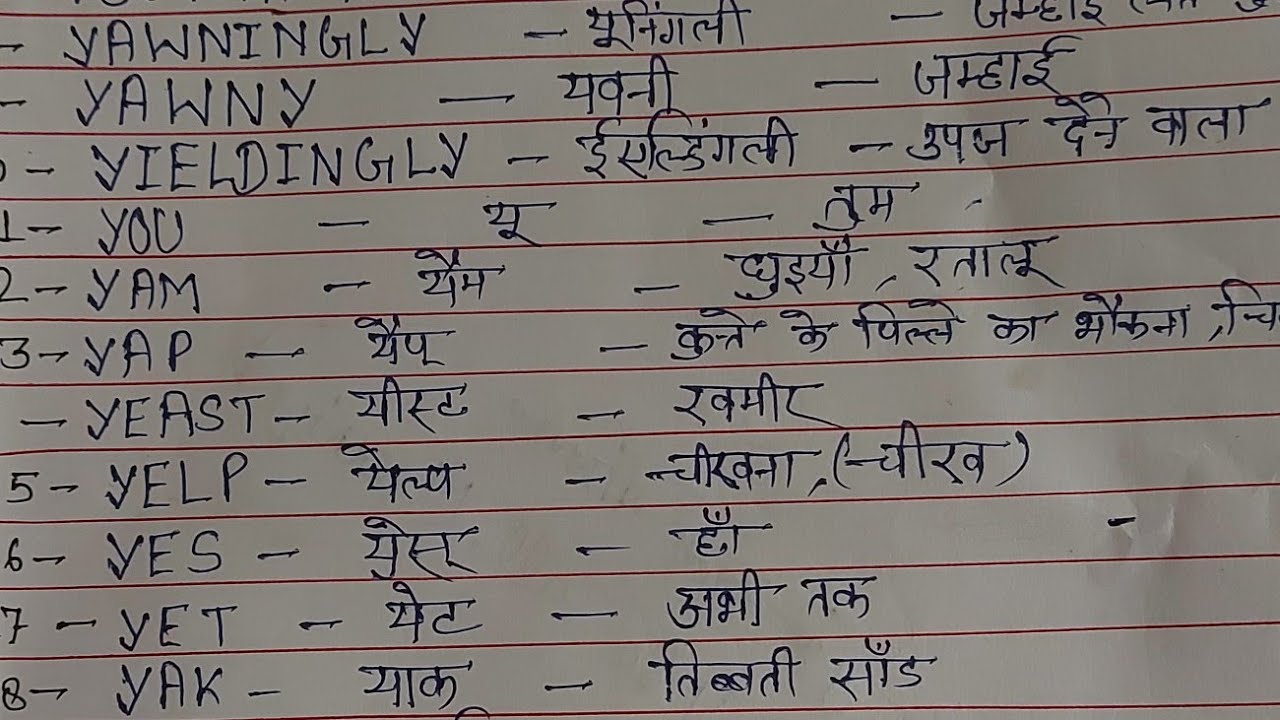 - YAWNINGLY - यूनिंगली - जम्हाई
- YAWNY - यवनी - जम्हाई
- YIELDINGLY - ईएल्डिंगली - उपज देने वाला
1- YOU - यू - तुम
2- YAM - यैम - घुइयाँ, रतालू
3- YAP - यैप् - कुत्ते के पिल्ले का भौकना,
- YEAST - यीस्ट - खमीर
5- YELP - येल्प - चीखना, (चीख)
6- YES - येस् - हाँ
7- YET - येट - अभी तक
8- YAK - याक् - तिब्बती साँड